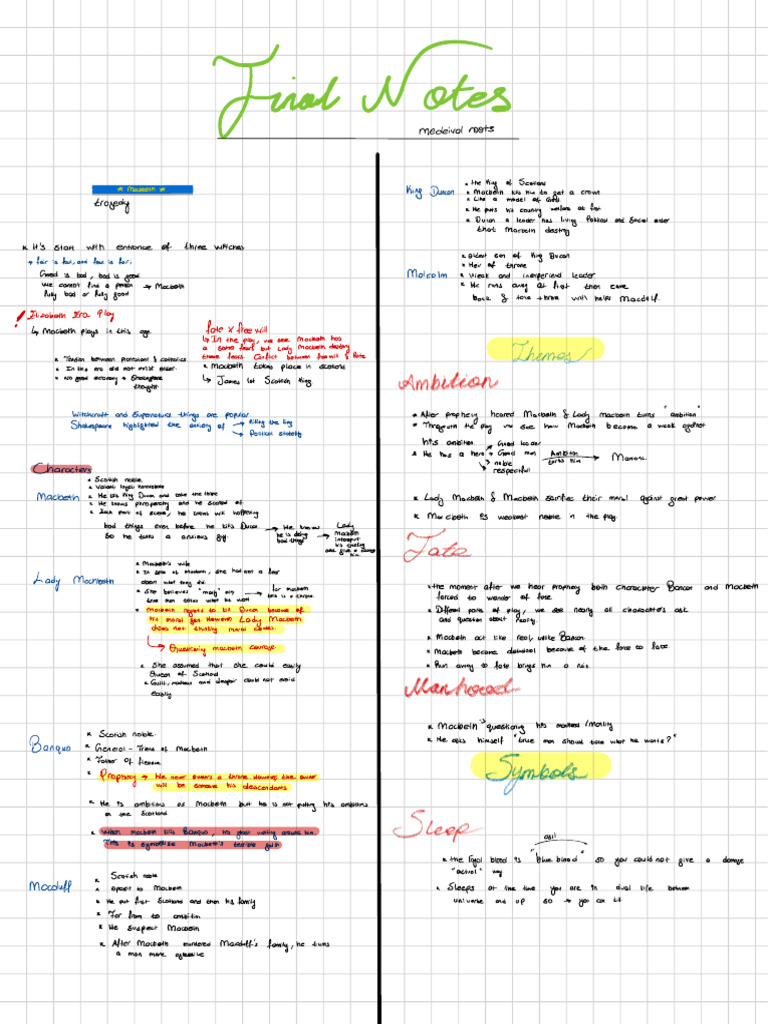 Final Notes
medeival roots
* Macbeth *
tragedy
x It's start with entrance of three witches
→ fair is foul, and foul is fair.
Good is bad, bad is good
we cannot find a person → Macbeth
fully bad or fully good
! Elizabeth Era Play
↳ Macbeth plays in this age.
x Tension between protestant & catholics
x In this era did not exist order.
x No good accuracy → Shakespeare
thought
fate x free will
↳ In the play, we see Macbeth has
a some fears but Lady Macbeth destroy
these fears. Conflict between free will & Fate
x Macbeth takes place in scotland
↳ James 1st Scotish King
Witchcraft and Supernatural things are popular.
Shakespeare highlighted the anxiety of → killing the king
→ Political stability
Characters
Macbeth
x Scotish noble.
x He kills King Duncan and take the throne
x He knows prosperity and he scared of.
bad things even before he kills Duncan
So he turns a anxious guy.
→ He knows
he is doing
bad things
→ Lady
Macbeth
Lady Macbeth
x Macbeth's wife
x In spite of Macbeth, she had not a fear
about what they did.
x She believes "manly" guys
true man takes what he want
→ for Macbeth
this is a critique
x Macbeth regrets to kill Duncan because of
his moral yes However Lady Macbeth
does not thinking moral values.
↳ Questioning macbeth courage.
x She assumed that she could easily
Queen of Scotland
x Guilt, madness and despair could not avoid
easily
Banquo
x Scotish noble.
x General - Thane of Macbeth
x Father of fleance
x Prophecy → He never owners a throne. However the owner
will be remove his descendants
x He is ambitious as Macbeth but he is not putting his ambitions
on one Scotland
x When macbeth kills Banquo, his ghost visiting around him.
This is symbolise Macbeth's terrible guilt
Macduff
x Scotish noble
x Oppost to Macbeth
x He put first Scotland and then his family
x Far from to ambition
x He suspect Macbeth
x After Macbeth murdered Macduff's family, he turns
a man more agressive
King Duncan
x The King of Scotland
x Macbeth kills him to get a crown
x Like a model of
x He puts his country welfare at first
x Duncan a leader has living Political and Social order
that Macbeth destroy
Malcolm
x oldest son of King Duncan
x Heir of throne
x Weak and inexperienced leader
x He runs away at first then came
back & take throne with helps Macduff.
Themes
Ambition
x After prophecy heared Macbeth & Lady macbeth turns "ambition"
x Througouth the play we see how Macbeth become a weak against
his ambition
x He has a hero → Good leader
→ Good man
→ noble
respectful
Ambition
turns him →
x Lady Macbeth & Macbeth sacrifice their moral against great power
x Macbeth is weakest noble in the play
Fate
x the moment after we hear prophecy both character Bancoo and Macbeth
forced to wonder of fate.
x Different parts of play, we see nearly all characters ask
and question about Reality.
x Macbeth act like real, unlike Bancoo
x Macbeth become downfall because of the face to fate.
x Run away to fate brings him a ruin.
Manhood
x Macbeth's questioning his manhood/morality
x He asks himself "true man should take what he wants?"
Symbols
Sleep
x the Royal blood is "blue blood" so you could not give a damage
"actual" way
x Sleeps at the time you are in dual life between
universe and up so → you can